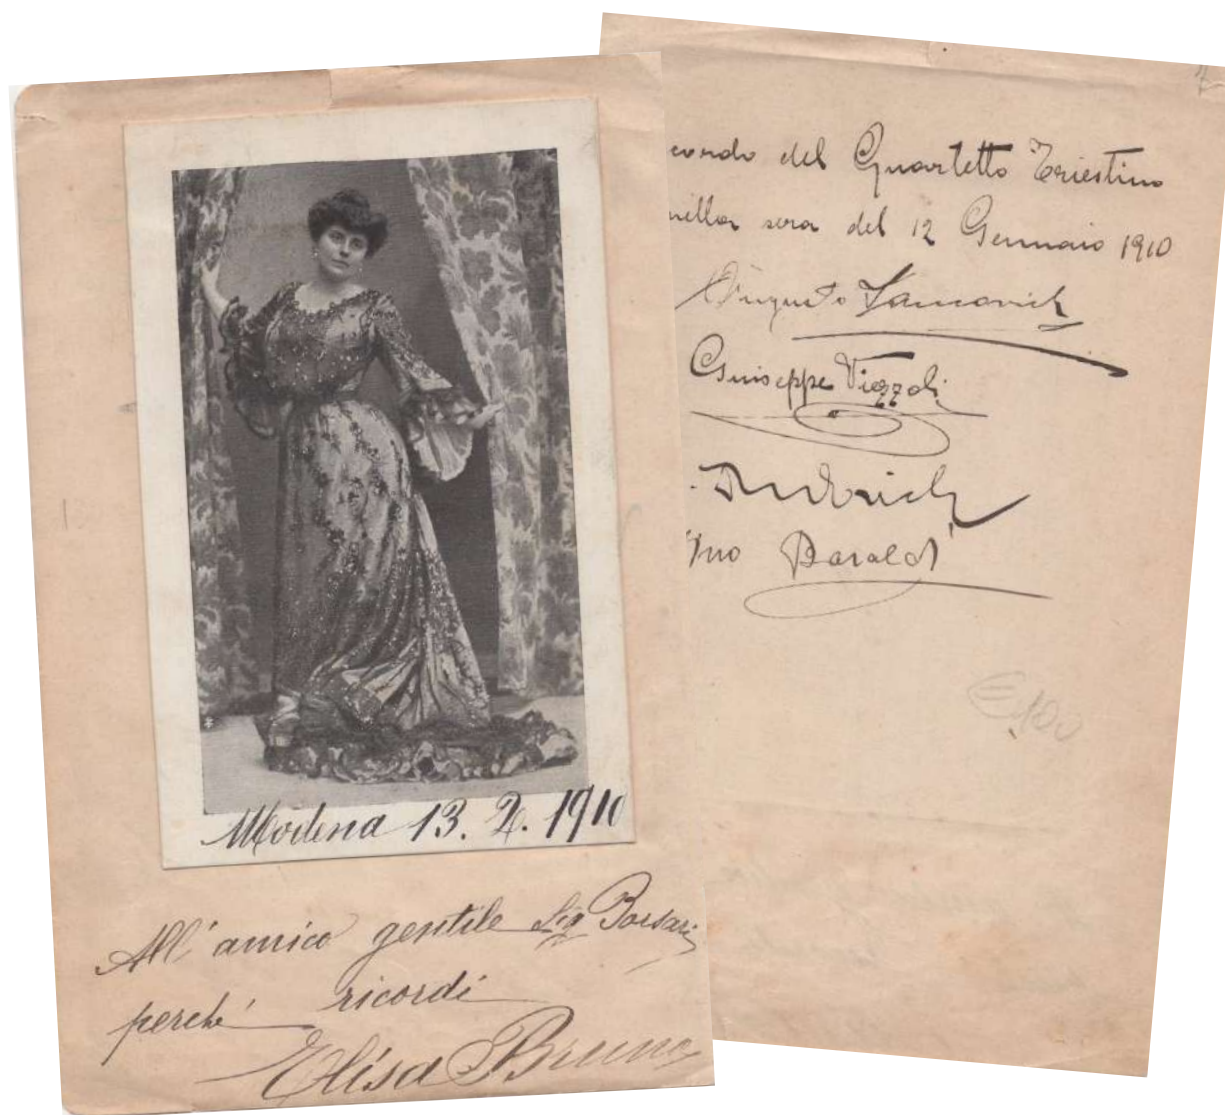 Modena 13. 2. 1910
All' amico gentile Sig Borsari
perché ricordi
Elisa Bruno
cordo del Quartetto Triestino
nella sera del 12 Gennaio 1910
Augusto Jancovich
Giuseppe Viezzoli
Dudovich
Dino Baraldi